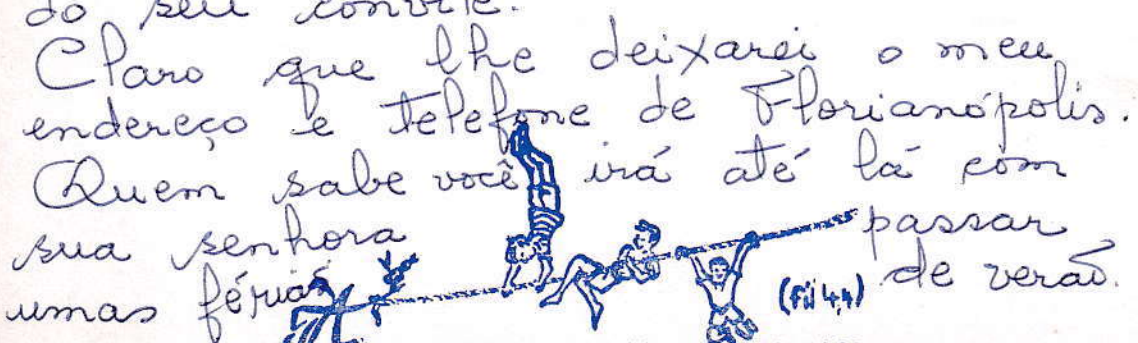 do seu convite.
Claro que lhe deixarei o meu
endereço e telefone de Florianópolis.
Quem sabe você irá até lá com
sua senhora passar
umas férias de verão.
(Fil 4,4)